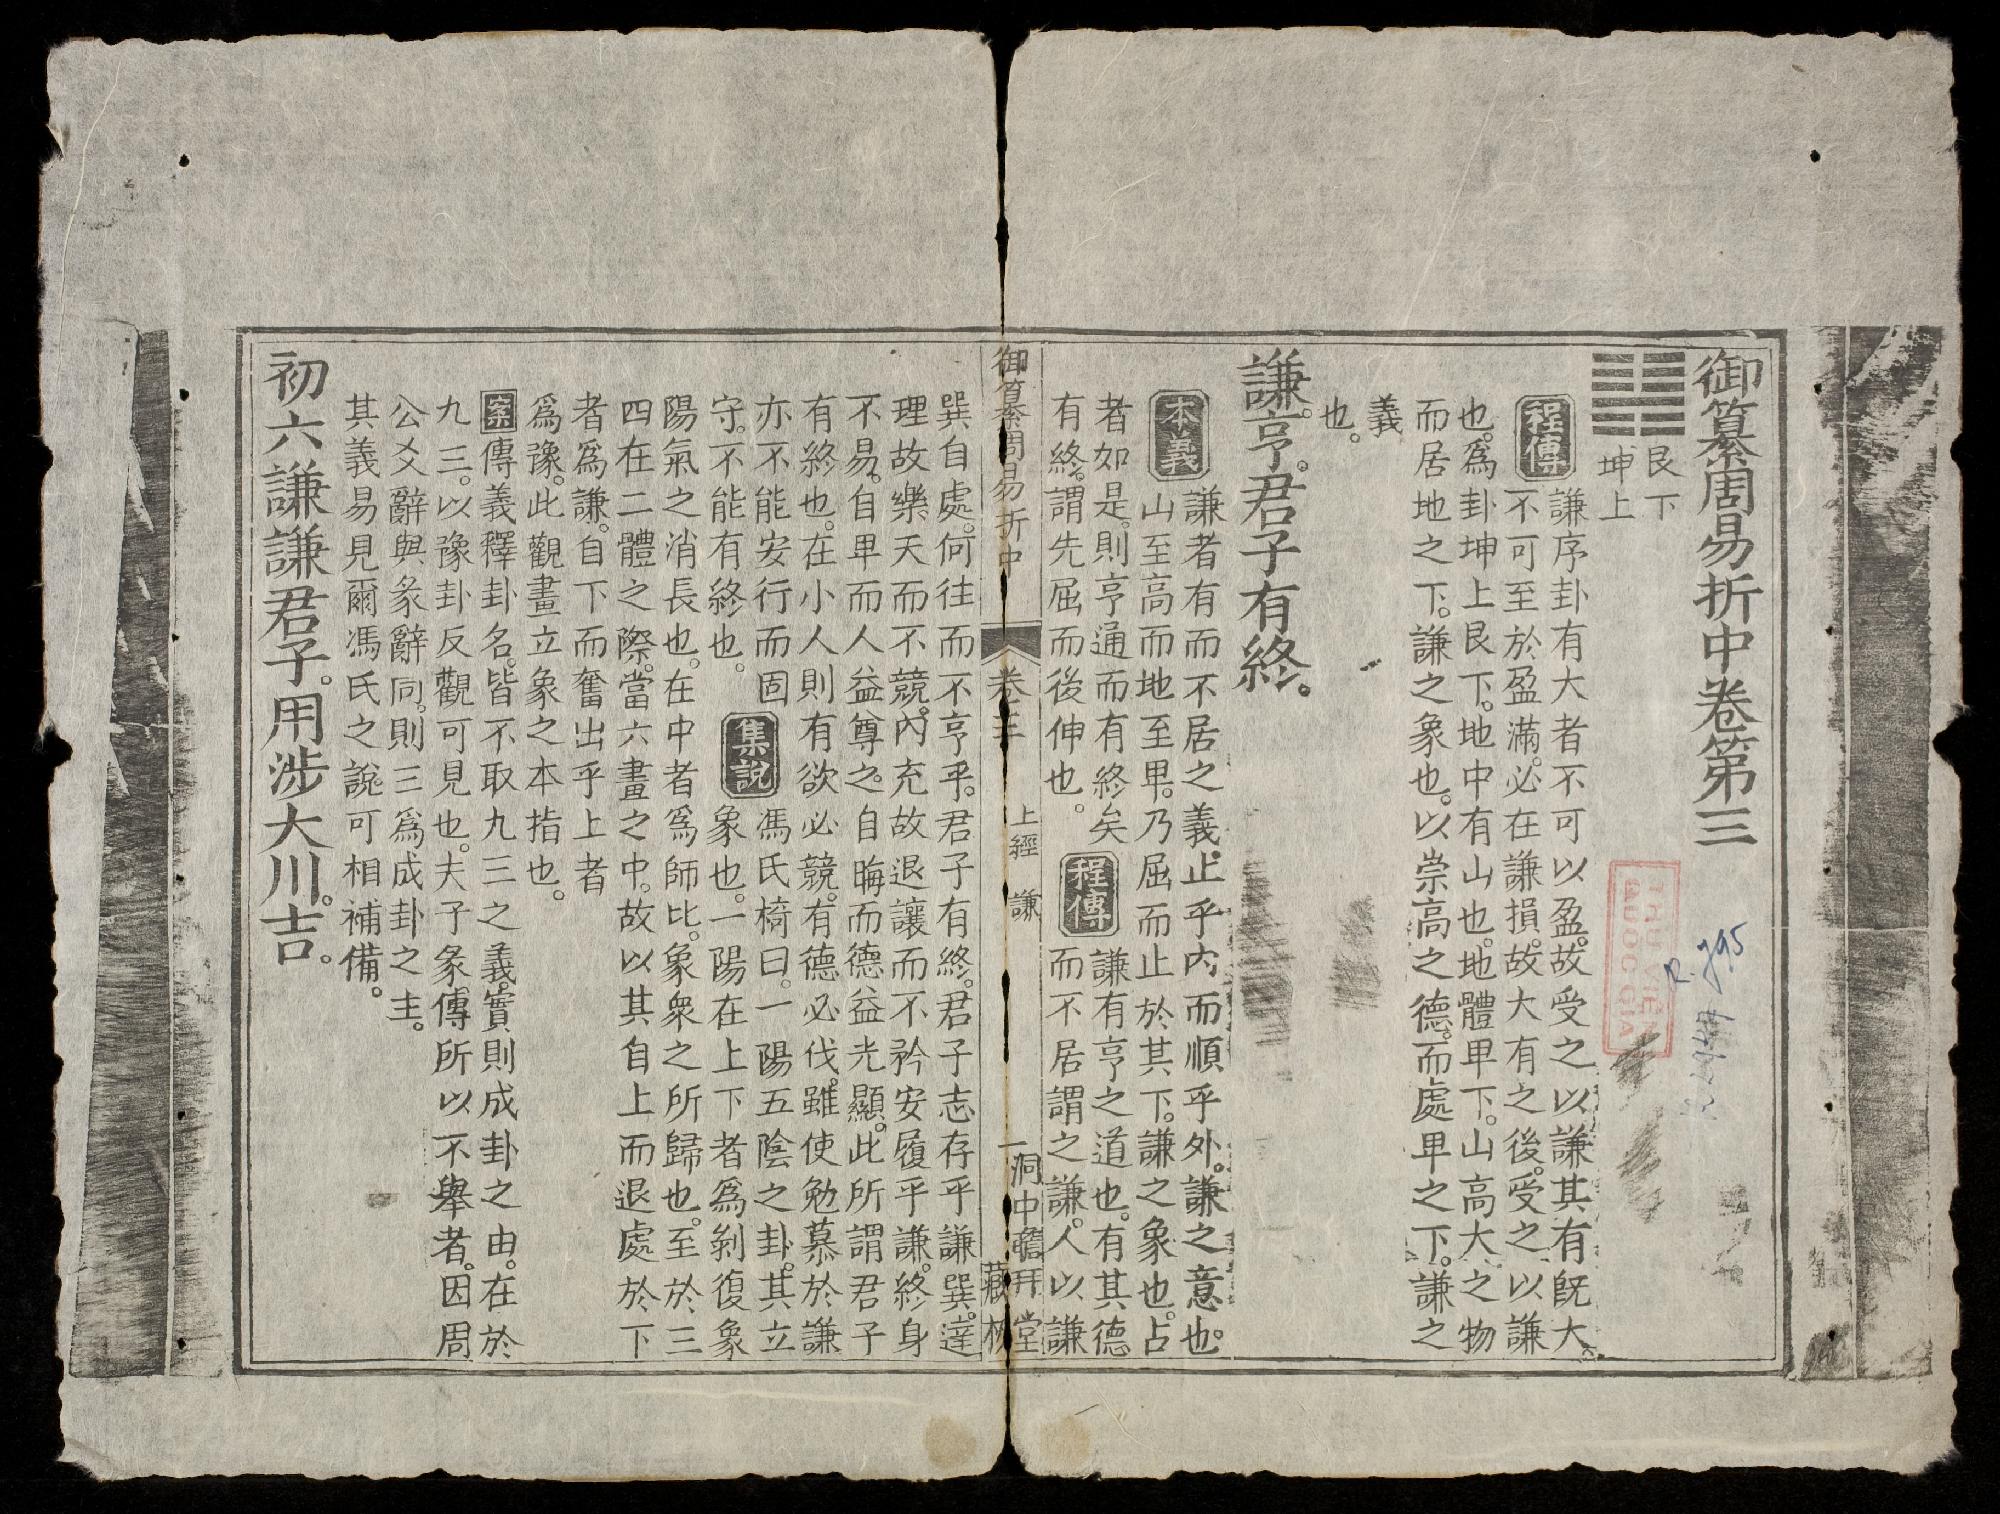 御纂周易折中卷第三
䷎
艮下
坤上
程傳
謙序卦有大者不可以盈。故受之以謙其有既大
不可至於盈滿。必在謙損。故大有之後。受之以謙
也。爲卦坤上艮下。地中有山也。地體卑下。山高大之物
而居地之下。謙之象也。以崇高之德。而處卑之下。謙之
義
也。
謙。亨。君子有終。
本義
謙者有而不居之義。止乎內而順乎外。謙之意也。
山至高而地至卑。乃屈而止於其下。謙之象也。占
者如是。則亨通而有終矣
有終。謂先屈而後伸也。
程傳
謙有亨之道也。有其德
而不居謂之謙。人以謙
御纂周易折中
卷三
上經 謙
一
洞中𧡪拜堂
藏板
巽自處。何往而不亨乎。君子有終。君子志存乎謙巽。達
理故樂天而不競。內充故退讓而不矜安履乎謙。終身
不易。自卑而人益尊之。自晦而德益光顯。此所謂君子
有終也。在小人則有欲必競。有德必伐。雖使勉慕於謙
亦不能安行而固
守。不能有終也。
集說
馮氏椅曰。一陽五陰之卦。其立
象也。一陽在上下者爲剝復象
陽氣之消長也。在中者爲師比。象衆之所歸也。至於三
四在二體之際。當六畫之中。故以其自上而退處於下
者爲謙。自下而奮出乎上者
爲豫。此觀畫立象之本指也。
案傳義釋卦名。皆不取九三之義。實則成卦之由。在於
九三。以豫卦反觀可見也。夫子彖傳所以不舉者。因周
公爻辭與彖辭同。則三爲成卦之主。
其義易見爾馮氏之說。可相補備。
初六謙謙君子。用涉大川。吉。
THƯ VIỆN
QUỐC GIA
R.795